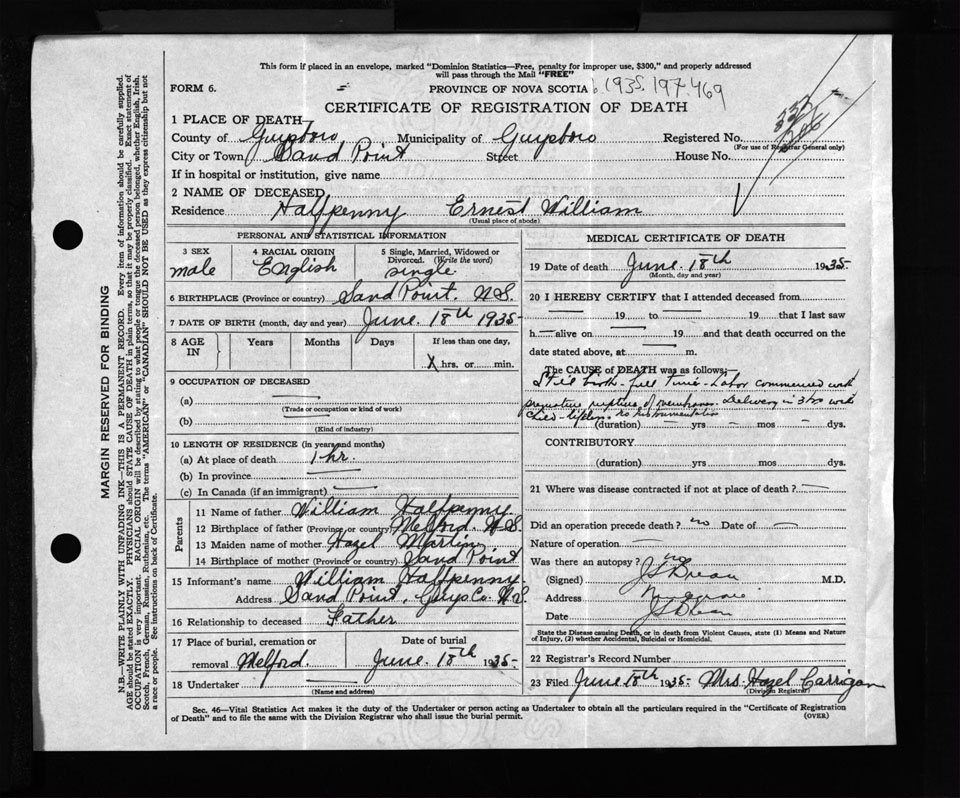 This form if placed in an envelope, marked "Dominion Statistics—Free, penalty for improper use, $300," and properly addressed
will pass through the Mail "FREE"
FORM 6.
PROVINCE OF NOVA SCOTIA 1935. 197.469
CERTIFICATE OF REGISTRATION OF DEATH
1 PLACE OF DEATH
County of Guysboro Municipality of Guysboro Registered No.
(For use of Registrar General only)
City or Town Sand Point Street House No.
If in hospital or institution, give name
2 NAME OF DECEASED
Residence Halfpenny Ernest William
(Usual place of abode)
PERSONAL AND STATISTICAL INFORMATION
3 SEX male
4 RACIAL ORIGIN English
5 Single, Married, Widowed or Divorced. (Write the word) single
6 BIRTHPLACE (Province or country) Sand Point. N.S.
7 DATE OF BIRTH (month, day and year) June. 18th 1935-
8 AGE IN Years Months Days If less than one day, X hrs. or min.
9 OCCUPATION OF DECEASED
(a)
(Trade or occupation or kind of work)
(b)
(Kind of industry)
10 LENGTH OF RESIDENCE (in years and months)
(a) At place of death 1 hr.
(b) In province
(c) In Canada (if an immigrant)
Parents
11 Name of father William Halfpenny
12 Birthplace of father (Province or country) Melford. N.S.
13 Maiden name of mother Hazel Martin
14 Birthplace of mother (Province or country) Sand Point
15 Informant's name William Halfpenny.
Address Sand Point, Guys Co. N.S.
16 Relationship to deceased Father
17 Place of burial, cremation or removal Melford.
Date of burial June. 18th 1935-
18 Undertaker
(Name and address)
MEDICAL CERTIFICATE OF DEATH
19 Date of death June. 18th 1935-
(Month, day and year)
20 I HEREBY CERTIFY that I attended deceased from
19 to 19 that I last saw
h alive on 19 and that death occurred on the
date stated above, at m.
The CAUSE of DEATH was as follows:
Still birth- full time- Labor commenced with
premature rupture of membranes. Delivery in 3 hrs with
child lifeless. no instrumentation
(duration) yrs mos dys.
CONTRIBUTORY
(duration) yrs mos dys.
21 Where was disease contracted if not at place of death?
Did an operation precede death? no Date of
Nature of operation
Was there an autopsy? no
(Signed) M.D.
Address
Date
State the Disease causing Death, or in death from Violent Causes, state (1) Means and Nature
of Injury, (2) whether Accidental, Suicidal or Homicidal.
22 Registrar's Record Number
23 Filed June 18th 1935- Mrs. Hazel Carrigan
(Division Registrar)
Sec. 46—Vital Statistics Act makes it the duty of the Undertaker or person acting as Undertaker to obtain all the particulars required in the "Certificate of Registration
of Death" and to file the same with the Division Registrar who shall issue the burial permit.
(OVER)
MARGIN RESERVED FOR BINDING
N.B.—WRITE PLAINLY WITH UNFADING INK—THIS IS A PERMANENT RECORD. Every item of information should be carefully supplied.
AGE should be stated EXACTLY. PHYSICIANS should STATE CAUSE OF DEATH in plain terms, so that it may be properly classified. Exact statement of
OCCUPATION is very important. RACIAL ORIGIN will be described by stating to what people or tongue the deceased person belonged, whether English, Irish,
Scotch, French, German, Russian, Ruthenian, etc. The terms "AMERICAN" or "CANADIAN" SHOULD NOT BE USED as they express citizenship but not
a race or people. See instructions on back of Certificate.